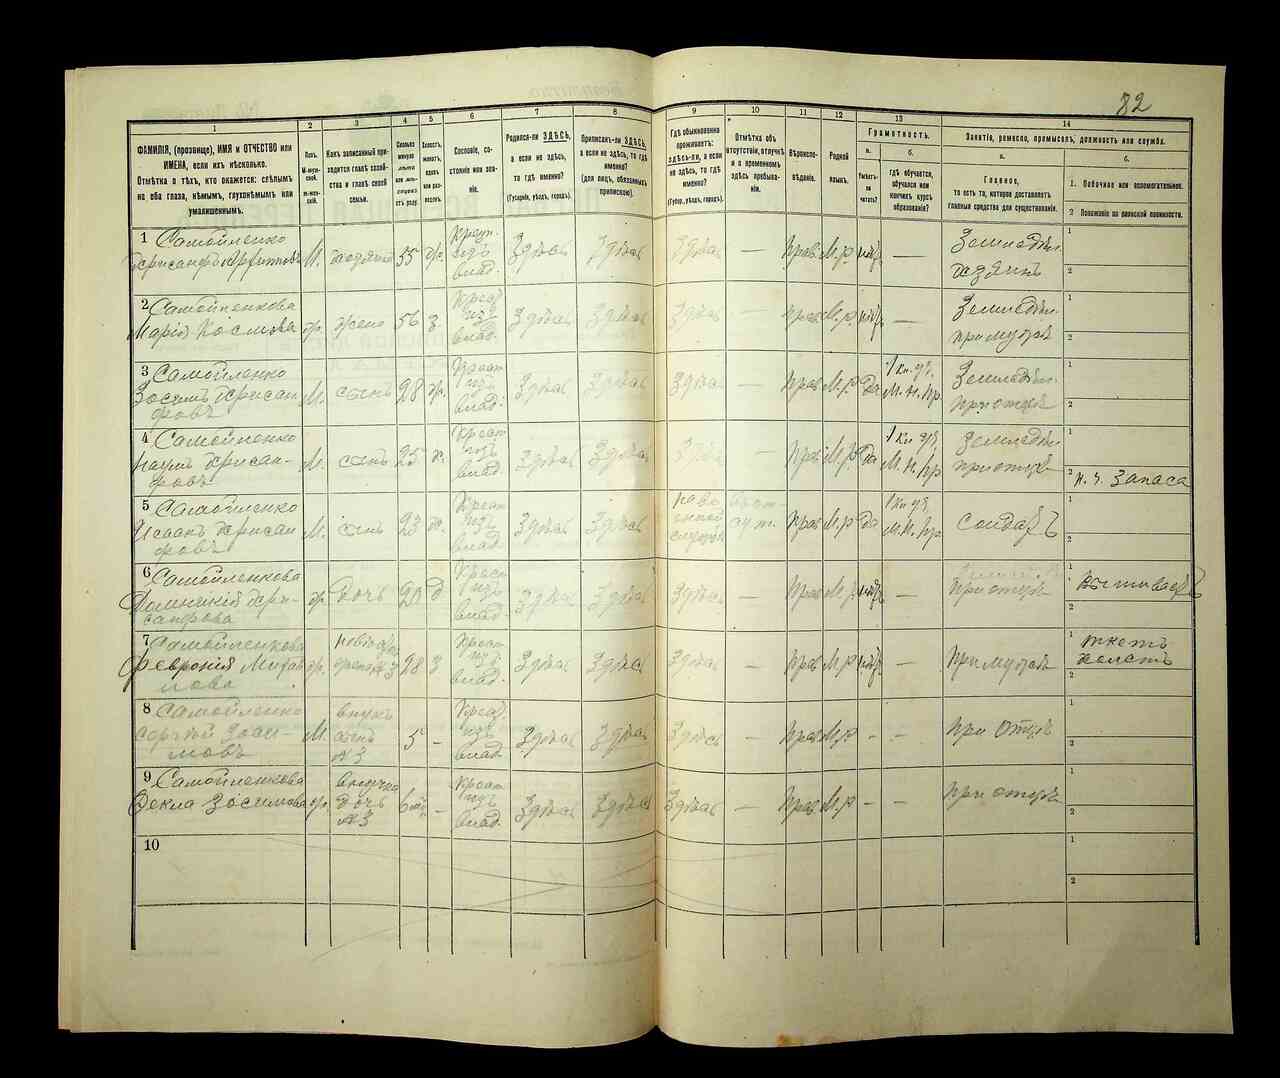 82
1
2
3
4
5
6
7
8
9
10
11
12
13
14
ФАМИЛІЯ, (прозвище), ИМЯ и ОТЧЕСТВО или
ИМЕНА, если ихъ нѣсколько.
Отмѣтка о тѣхъ, кто окажется: слѣпымъ
на оба глаза, нѣмымъ, глухонѣмымъ или
умалишеннымъ.
Полъ.
Какъ записанный при-
ходится главѣ хозяй-
ства и главѣ своей
семьи.
Сколько
Сословіе, со-
стояніе или зва-
ніе.
Родился-ли ЗДѢСЬ,
а если не здѣсь,
то гдѣ именно?
(Губернія, уѣздъ, городъ).
Приписанъ-ли ЗДѢСЬ,
а если не здѣсь, то гдѣ
именно?
(для лицъ, обязанныхъ
припискою).
Гдѣ обыкновенно
проживаетъ:
здѣсь-ли, а если
не здѣсь, то гдѣ
именно?
(Губер., уѣздъ, городъ).
Отмѣтка объ
отсутствіи, отлучкѣ
и о временномъ
здѣсь пребыва-
ніи.
Вѣроиспо-
вѣданіе.
Родной
языкъ.
Грамотность.
а.
Умѣетъ-
ли
читать?
б.
Гдѣ обучается,
обучался или
кончилъ курсъ
образованія?
Занятіе, ремесло, промыселъ, должность или служба.
а.
Главное,
то есть то, которое доставляетъ
главныя средства для существованія.
б.
1. Побочное или вспомогательное.
2 Положеніе по воинской повинности.
1 Самойленко
М. 55 Крест. изъ влад. Здѣсь Здѣсь Здѣсь — Прав М.р нѣтъ — Земледѣл.
2 Самойленкова
Марія Космова ж. жена 56 з. Крест изъ влад. Здѣсь Здѣсь Здѣсь — Прав М.р. нѣтъ — Земледѣл.
при мужѣ
3 Самойленко
Зосимъ Хрисан
фовъ М. сынъ 28 ж. Крест изъ влад. Здѣсь Здѣсь Здѣсь — Прав М.р да М. Н. Пр. Земледѣл.
при отцѣ
4 Самойленко
Наумъ Хрисан-
фовъ М. сынъ 25 Крест изъ влад. Здѣсь Здѣсь Здѣсь — Прав М.р да М. Н. Пр Земледѣл
при отцѣ
Запаса
5 Самойленко
Исаакъ Хрисан
фовъ М. сынъ 23 Крест изъ влад. Здѣсь Здѣсь Прав М.р да М. Н. Пр. Солдатъ
6 Самойленкова
Хри-
санфова ж. дочь 20 д Крест изъ влад. Здѣсь Здѣсь Здѣсь — Прав М.р нѣтъ — при отцѣ Вышиваетъ
7 Самойленкова
Февронія Михай
лова ж. 28 з Крест изъ влад. Здѣсь Здѣсь Здѣсь — Прав М.р нѣтъ — При мужѣ ткетъ
холстъ
8 Самойленко
Зоси-
мовъ М. внукъ
сынъ
№3 5 - Крест. изъ влад. Здѣсь Здѣсь Здѣсь — Прав М.р - - при отцѣ
9 Самойленкова
Фекла Зосимова ж. внучка
дочь
№3 Крест изъ влад. Здѣсь Здѣсь Здѣсь — Прав М.р - - при отцѣ
10